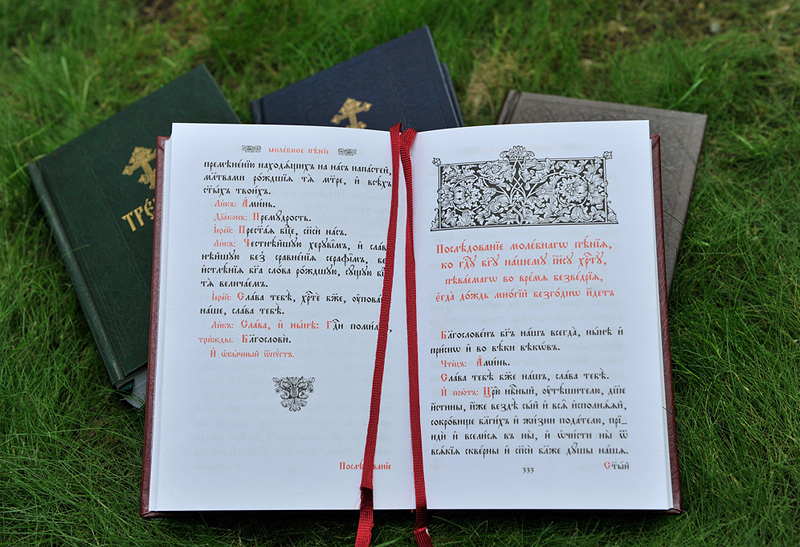 ТРЕ
МОЛЕ́БНОЕ ПѢ́НЇЕ
премѣне́нїю находѧ́щихъ на на́съ напа́стей,
мл҃твами ро́ждшїѧ тѧ̀ мт҃ре, и҆ всѣ́хъ
ст҃ы́хъ твои́хъ.
Ли́къ: А҆ми́нь.
Дїа́конъ: Премꙋ́дрость.
І҆ере́й: Прест҃а́ѧ бц҃е, сп҃сѝ на́съ.
Ли́къ: Честнѣ́йшꙋю херꙋві̑мъ, и҆ сла́в
нѣ́йшꙋю без̾ сравне́нїѧ серафі̑мъ, бе
истлѣ́нїѧ бг҃а сло́ва ро́ждшꙋю, сꙋ́щꙋю бц
тѧ̀ велича́емъ.
І҆ере́й: Сла́ва тебѣ̀, хрⷭ҇тѐ бж҃е, ᲂу҆пова́
на́ше, сла́ва тебѣ̀.
Ли́къ: Сла́ва, и҆ ны́нѣ: Гдⷭ҇и поми́л
три́жды. Благословѝ.
И҆ ѡ҆бы́чный ѿпꙋ́стъ.
Послѣ́дованїе
Послѣ́дованїе моле́бнагѡ пѣ́нїѧ,
ко гдⷭ҇ꙋ бг҃ꙋ на́шемꙋ і҆и҃сꙋ хрⷭ҇тꙋ̀,
пѣва́емагѡ во вре́мѧ безве́дрїѧ,
є҆гда̀ до́ждь мно́гїй безго́днѡ и҆́детъ
Благослове́нъ бг҃ъ на́шъ всегда̀, ны́нѣ и҆
при́снѡ и҆ во вѣ́ки вѣкѡ́въ.
Чте́цъ: А҆ми́нь.
Сла́ва тебѣ̀ бж҃е на́шъ, сла́ва тебѣ̀.
И҆ пою́тъ: Цр҃ю̀ нбⷭ҇ный, ᲂу҆тѣ́шителю, дш҃е
и҆́стины, и҆́же вездѣ̀ сы́й и҆ всѧ̑ и҆сполнѧ́ѧй,
сокро́вище благи́хъ и҆ жи́зни пода́телю, прїи_
дѝ и҆ всели́сѧ въ ны̀, и҆ ѡ҆чи́сти ны̀ ѿ
всѧ́кїѧ скве́рны и҆ сп҃сѝ бл҃же дꙋ́шы на́шѧ.
333
Ст҃ы́й